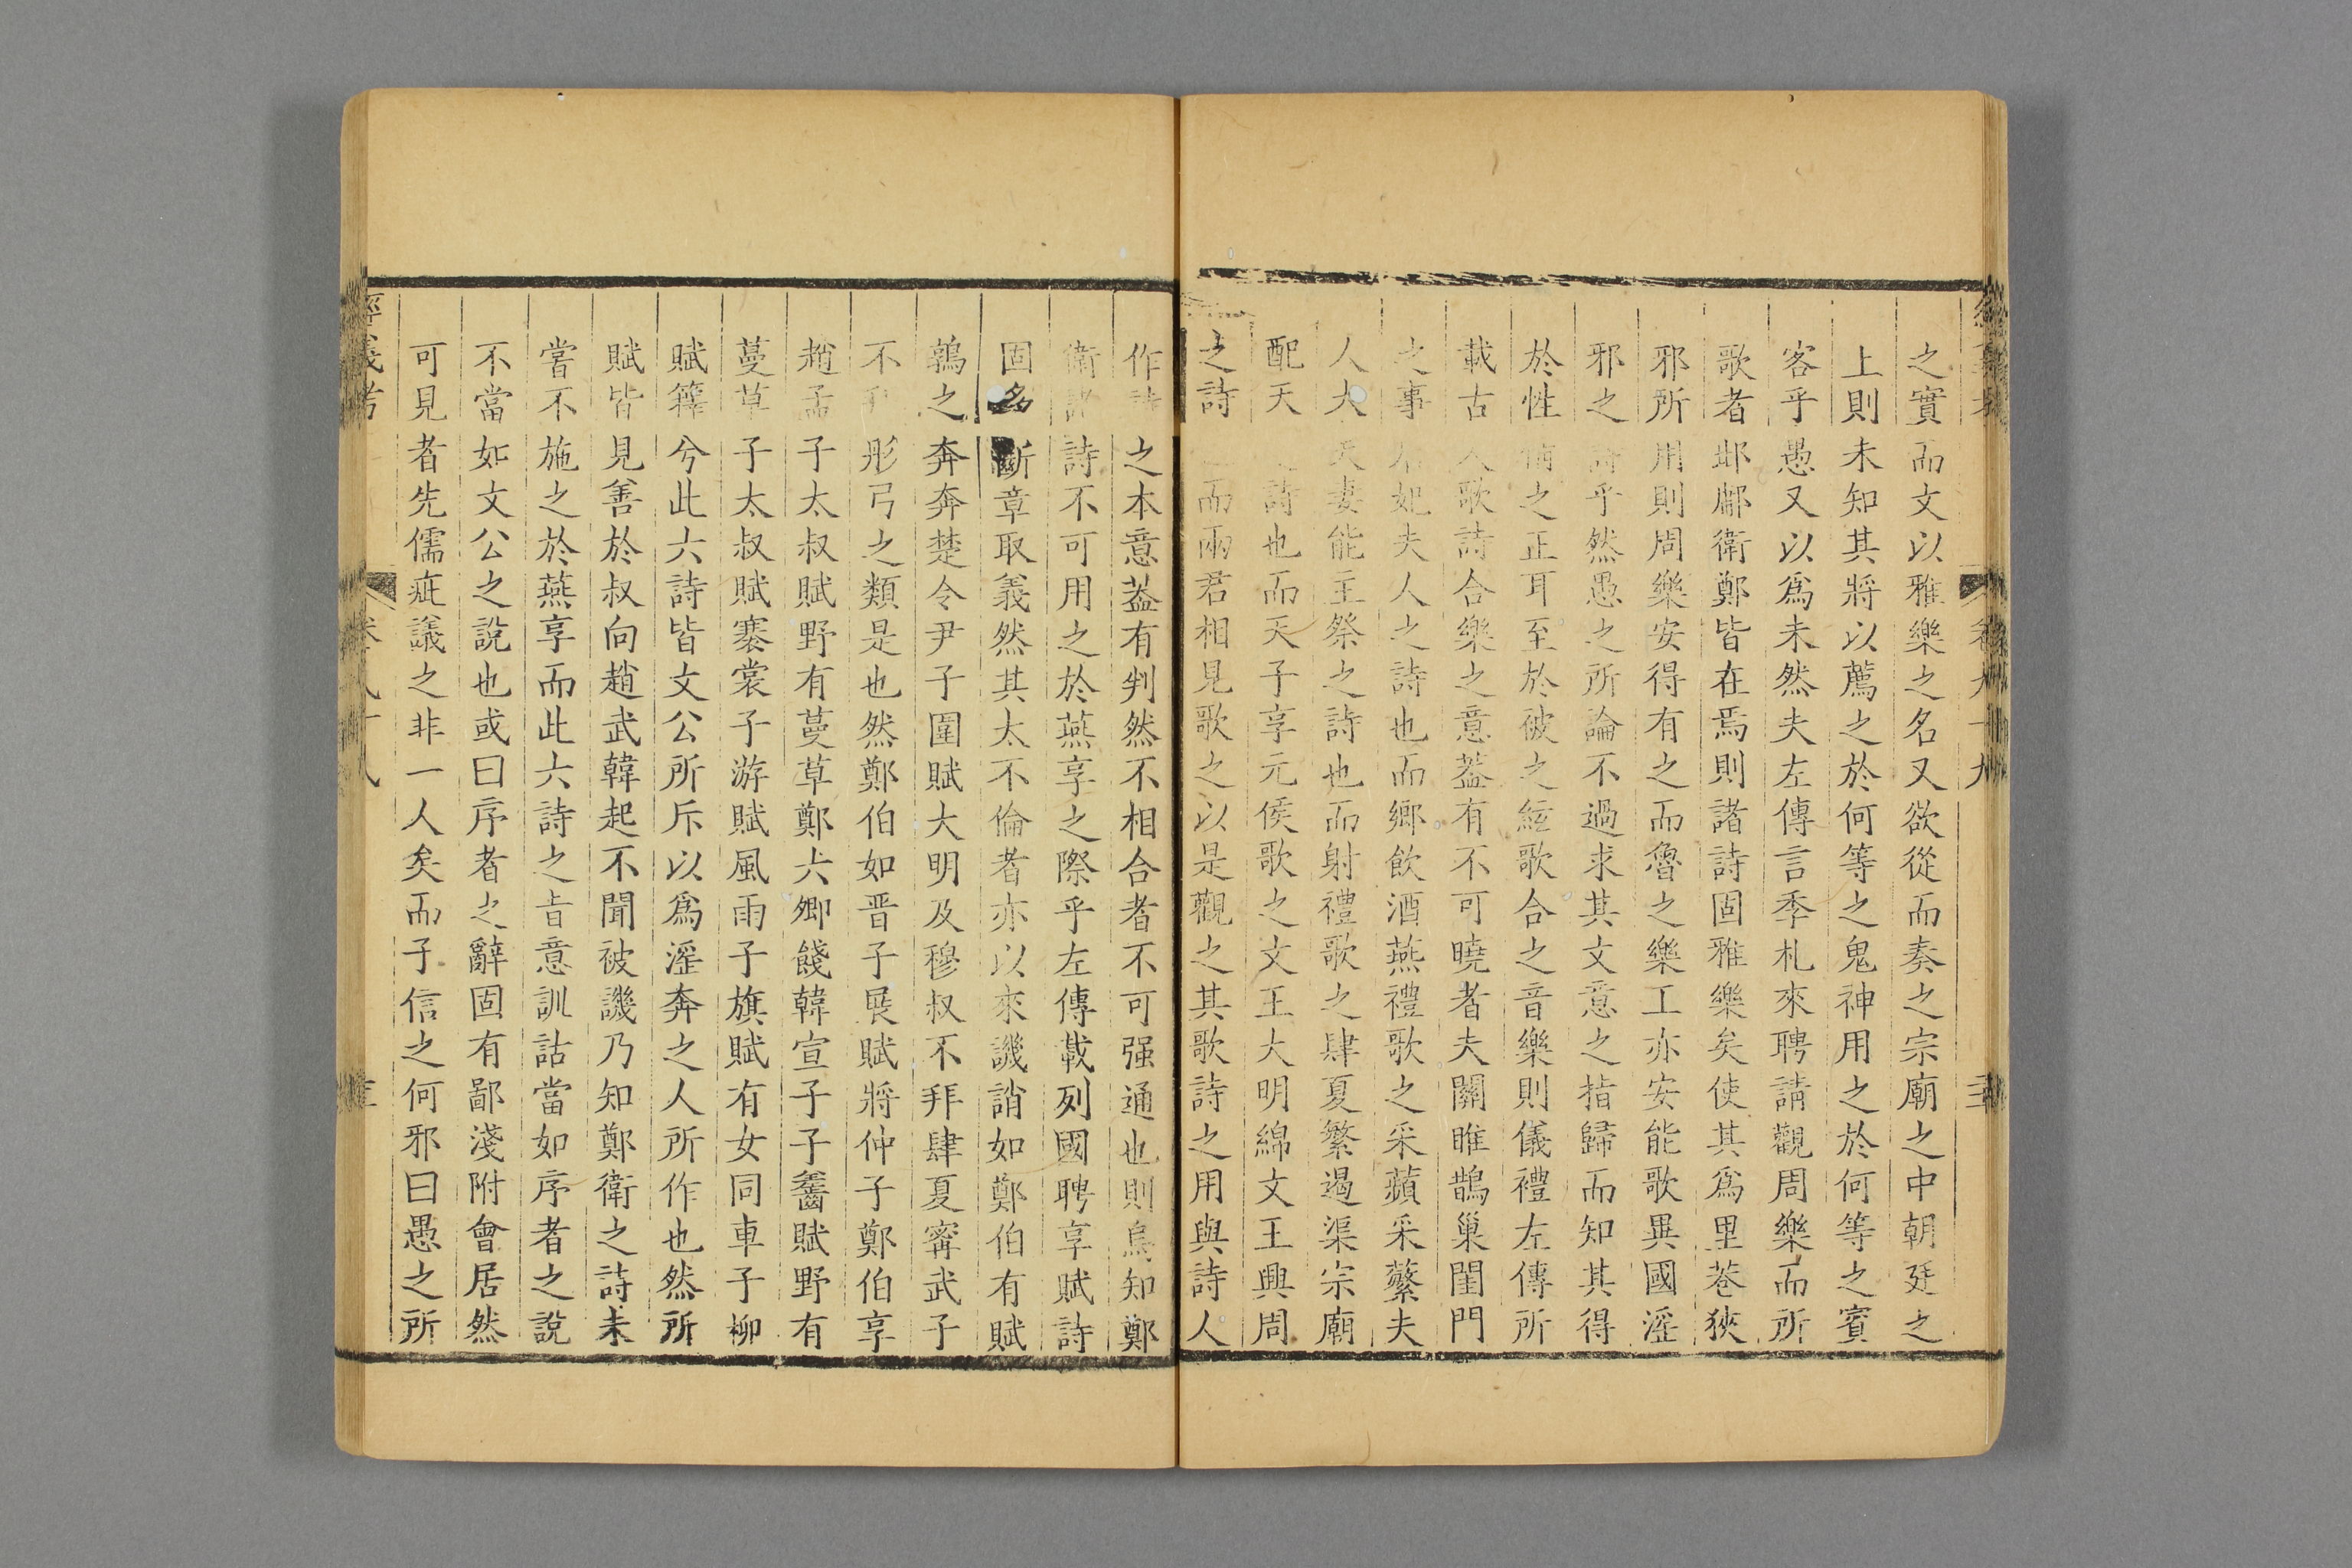 之實而文以雅樂之名又欲從而奏之宗廟之中朝廷之
上則未知其將以薦之於何等之鬼神用之於何等之賓
客乎愚又以爲未然夫左傳言季札來聘請觀周樂而所
歌者邶鄘衛鄭皆在焉則諸詩固雅樂矣使其爲里巷狹
邪所用則周樂安得有之而魯之樂工亦安能歌異國淫
邪之詩乎然愚之所論不過求其文意之指歸而知其得
於性情之正耳至於被之絃歌合之音樂則儀禮左傳所
載古人歌詩合樂之意葢有不可曉者夫關雎鵲巢閨門
之事后妃夫人之詩也而鄉飲酒燕禮歌之采蘋采蘩夫
人大夫妻能主祭之詩也而射禮歌之肆夏繁遏渠宗廟
配天之詩也而天子享元侯歌之文王大明綿文王興周
之詩也而兩君相見歌之以是觀之其歌詩之用與詩人
作詩之本意葢有判然不相合者不可强通也則烏知鄭
衛諸詩不可用之於燕享之際乎左傳載列國聘享賦詩
固多斷章取義然其太不倫者亦以來譏誚如鄭伯有賦
鶉之奔奔楚令尹子圍賦大明及穆叔不拜肆夏甯武子
不拜彤弓之類是也然鄭伯如晋子展賦將仲子鄭伯享
趙孟子太叔賦野有蔓草鄭六卿餞韓宣子子齹賦野有
蔓草子太叔賦褰裳子游賦風雨子旗賦有女同車子柳
賦蘀兮此六詩皆文公所斥以爲淫奔之人所作也然所
賦皆見善於叔向趙武韓起不聞被譏乃知鄭衛之詩未
嘗不施之於燕享而此六詩之旨意訓詁當如序者之說
不當如文公之說也或曰序者之辭固有鄙淺附會居然
可見者先儒疵議之非一人矣而子信之何邪曰愚之所
經義考